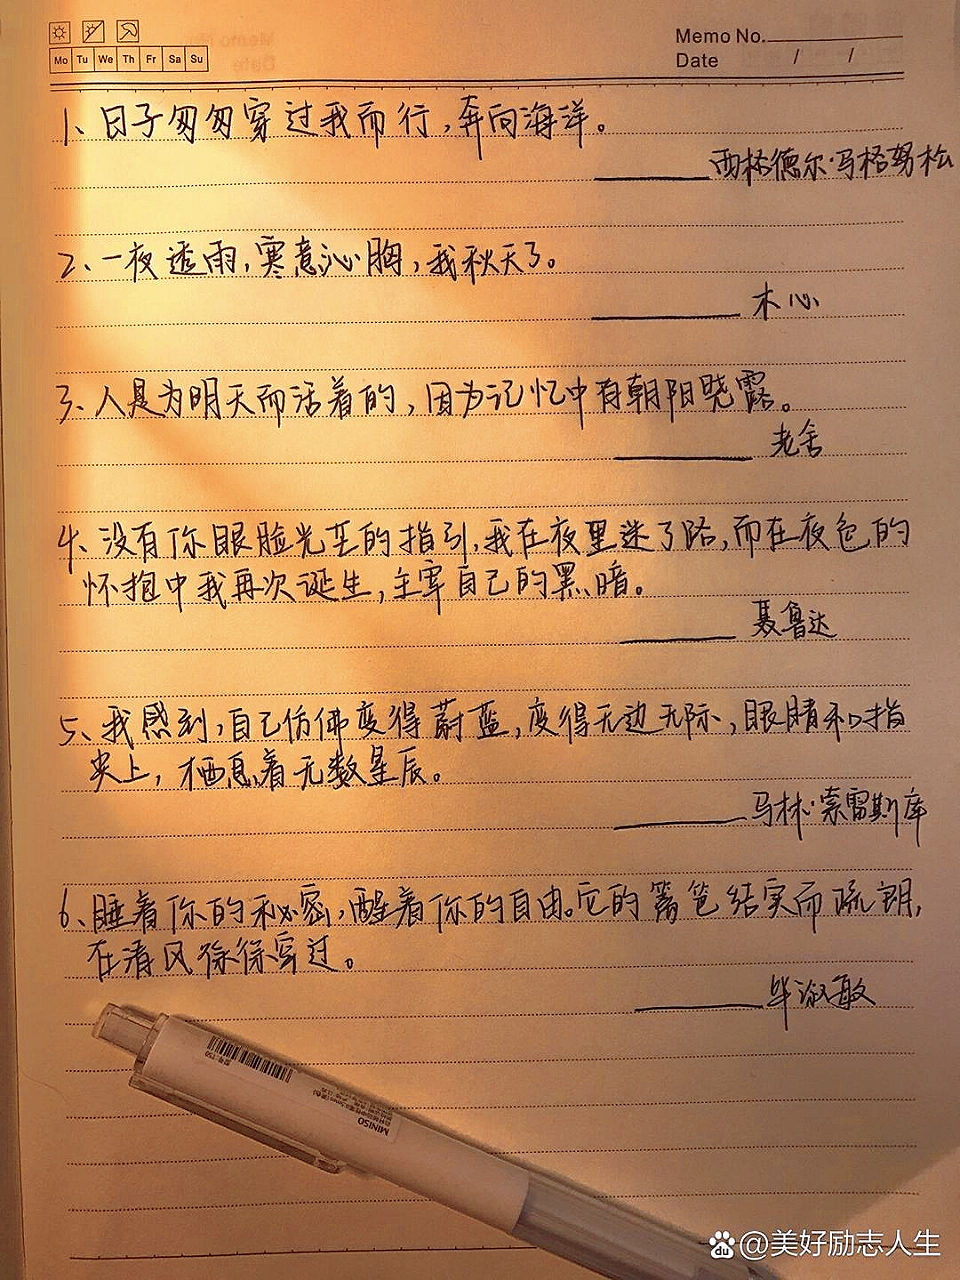 Memo No.
Mo Tu We Th Fr Sa Su
Date / /
1、日子匆匆穿过我而行,奔向海洋。
西格德尔·玛格努松
2、一夜透雨,寒意沁胸,我秋天了。
木心
3、人是为明天而活着的,因为记忆中有朝阳晓露。
老舍
4、没有你眼脸光芒的指引,我在夜里迷了路,而在夜色的
怀抱中我再次诞生,主宰自己的黑暗。
聂鲁达
5、我感到,自己仿佛变得蔚蓝,变得无边无际,眼睛和指
尖上,栖息着无数星辰。
马林·索雷斯库
6、睡着你的秘密,醒着你的自由。它的篱笆结实而疏朗,
在清风徐徐穿过。
毕淑敏
MINISO
@美好励志人生